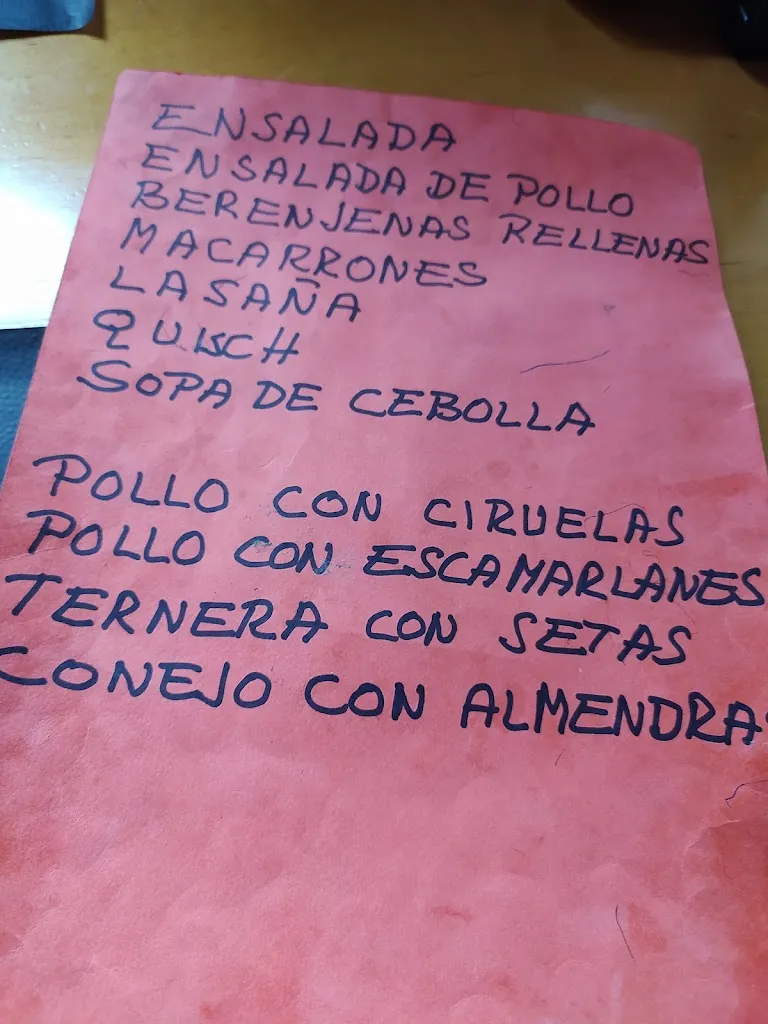 ENSALADA
ENSALADA DE POLLO
BERENJENAS RELLENAS
MACARRONES
LASAÑA
QUISCH
SOPA DE CEBOLLA
POLLO CON CIRUELAS
POLLO CON ESCAMARLANES
TERNERA CON SETAS
CONEJO CON ALMENDRAS